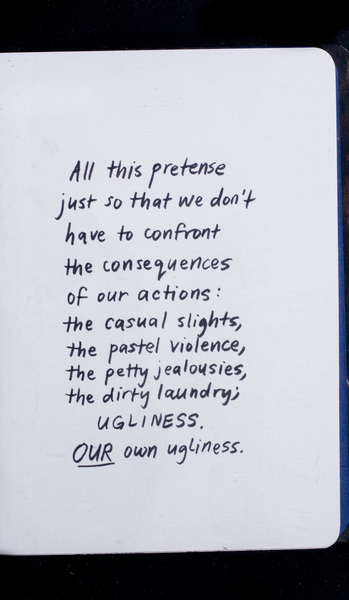 All this pretense
just so that we don't
have to confront
the consequences
of our actions:
the casual slights,
the pastel violence,
the petty jealousies,
the dirty laundry;
UGLINESS.
OUR own ugliness.